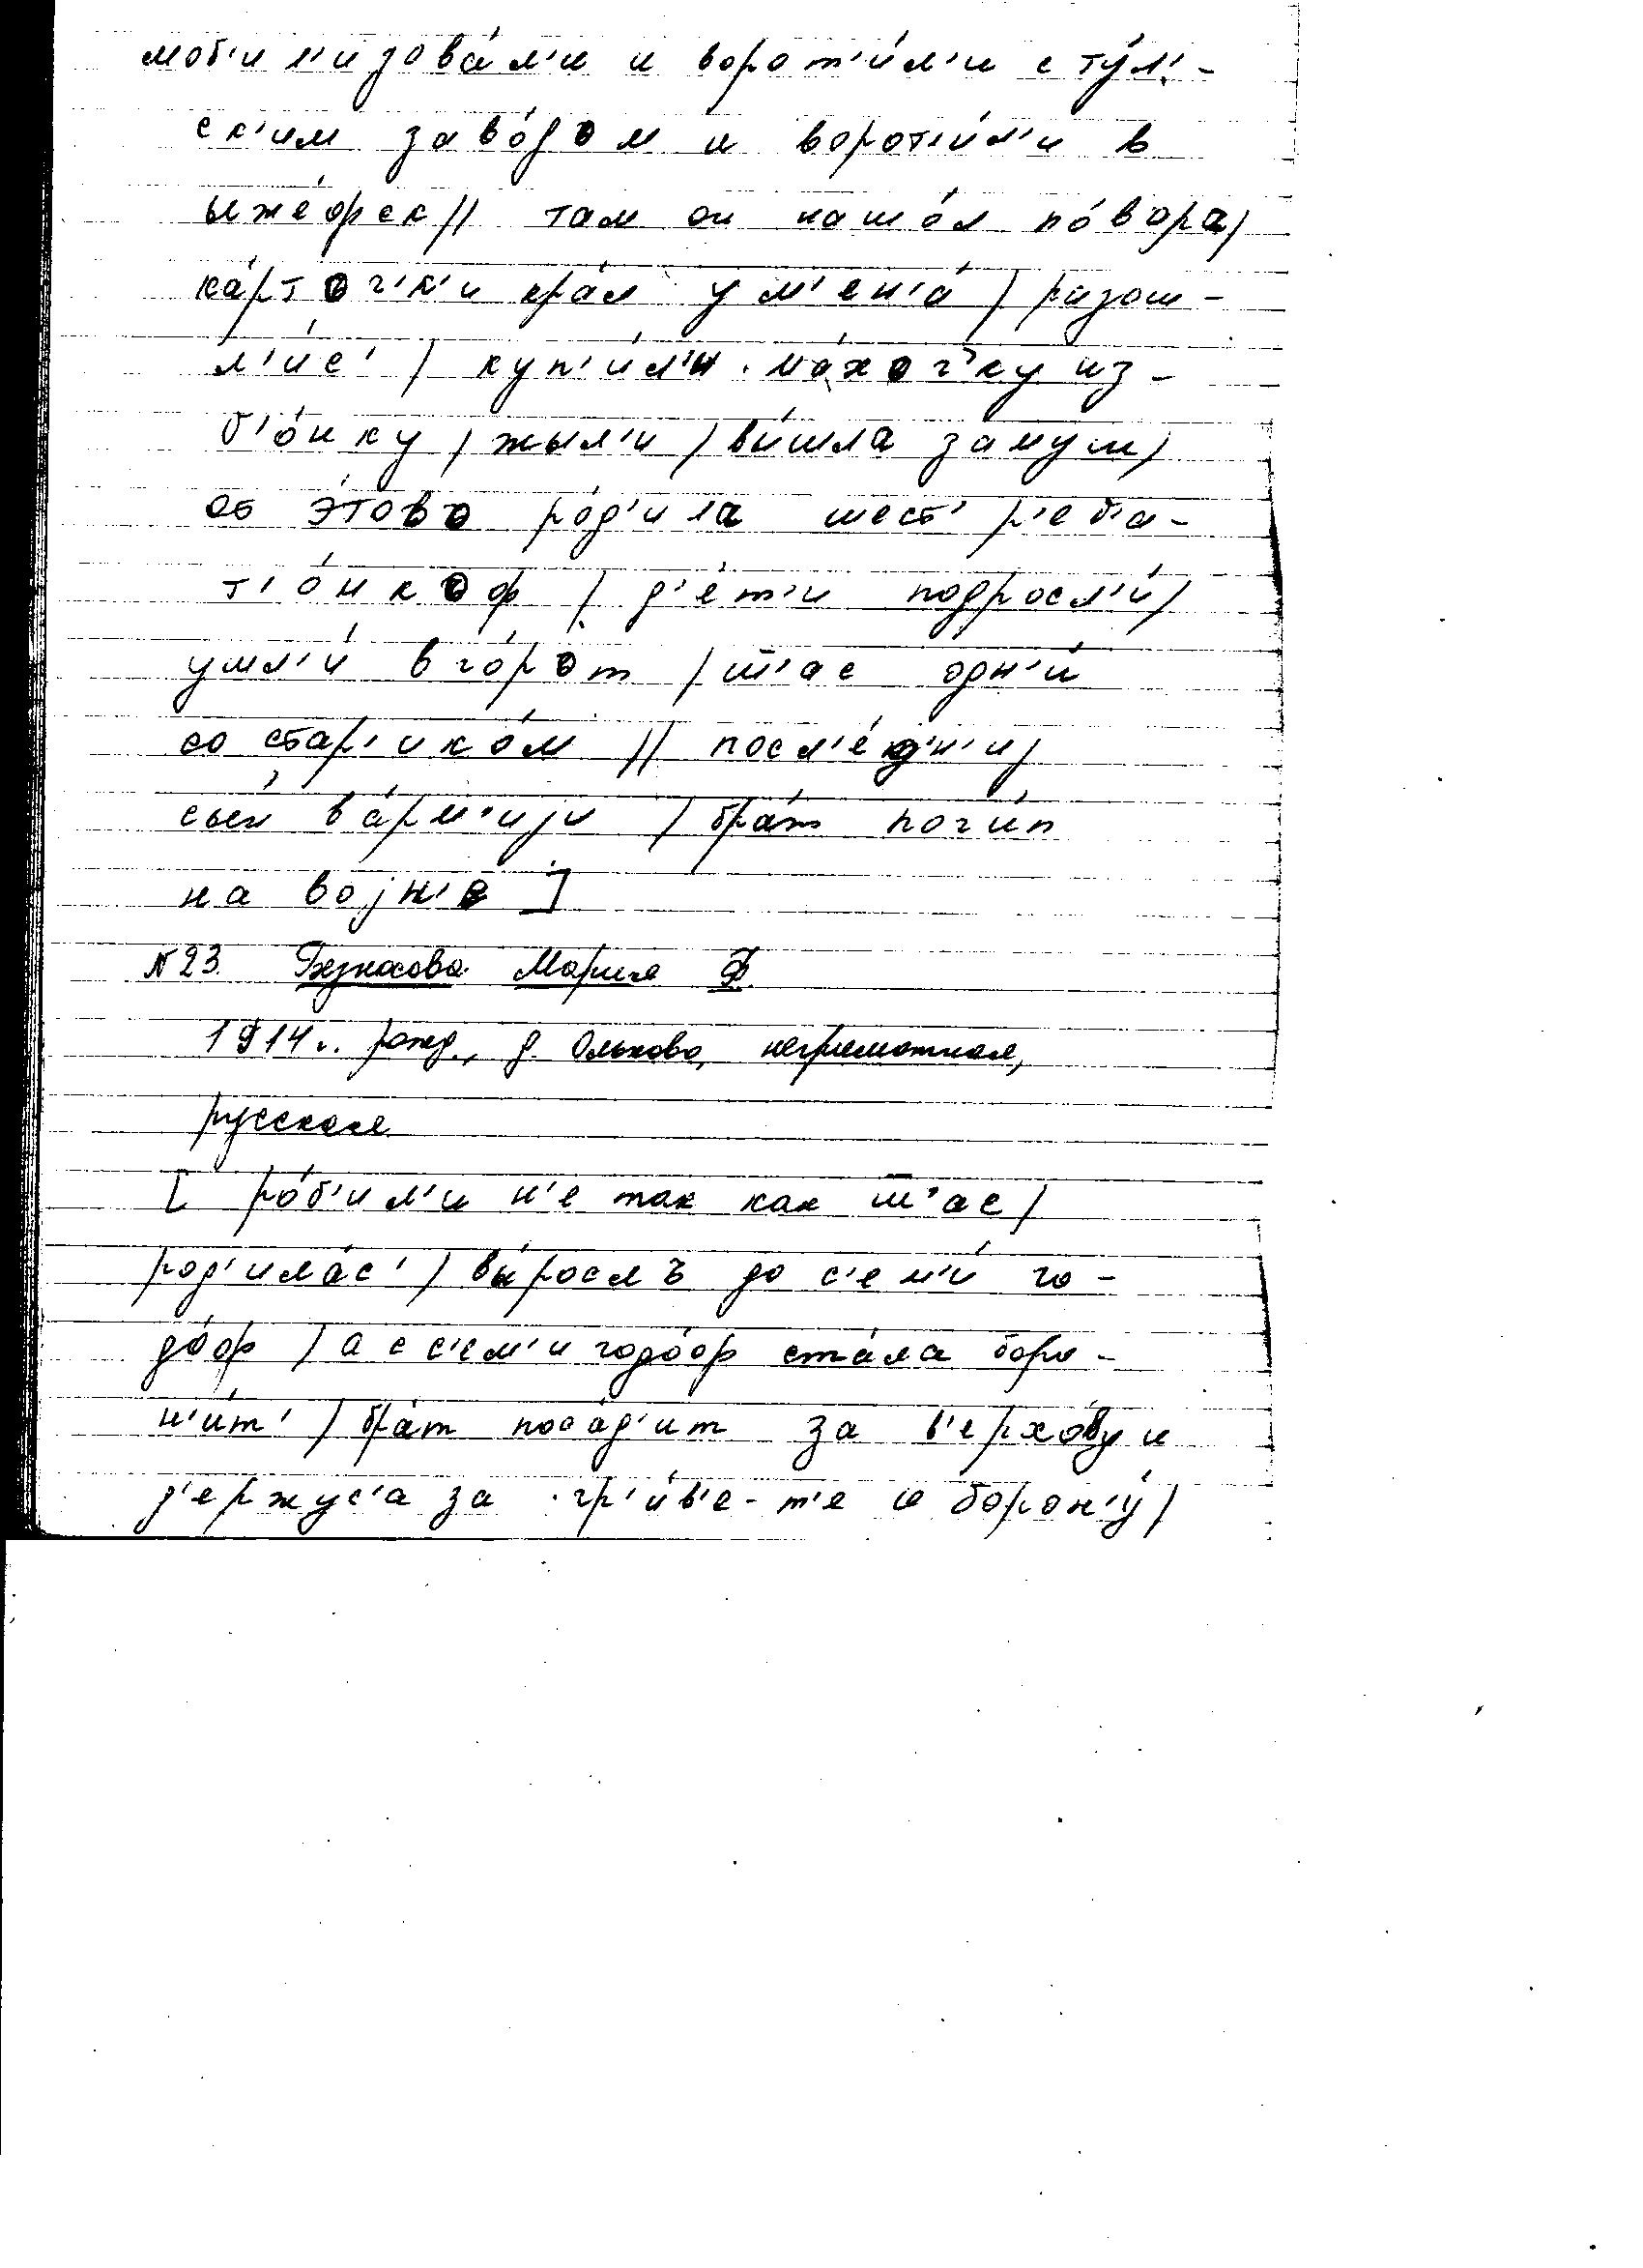 моб'ил'изова́л'и и ворот'и́л'и с ту́л'-
ск'им заво́дом и ворот'и́л'и в
ыже́фск // там он нашо́л по́вора /
ка́рточ'к'и кра́л у м'ен'а́ / разош-
л'и́с' / куп'и́л'и ма́хоч'ку из-
б'о́нку / жыл'и / вы́шла замуш /
от э́тово род'ила шест' р'еб'а-
т'о́нкоф / д'е́т'и подросл'и́ /
ушл'и́ в го́рот / ш̅'ас одн'и́
со стар'ико́м // посл'е́дн'иj
сын в а́рм'иjи / бра́т поги́п
на воjн'е ]
№23. Безносова Мария Ф.
1914 г. рожд., д. Ольхово, неграмотная,
русская
[ ро́б'ил'и н'е так как ш̅'ас /
род'ила́с' / вы́рослъ до с'ем'и́ го-
до́ф / а с с'ем'и годо́ф ста́ла боро-
н'и́т' / бра́т поса́д'ит за в'ерхо́ву и
д'ержус'а за гр'и́в'е-т'е и борон'у́ /